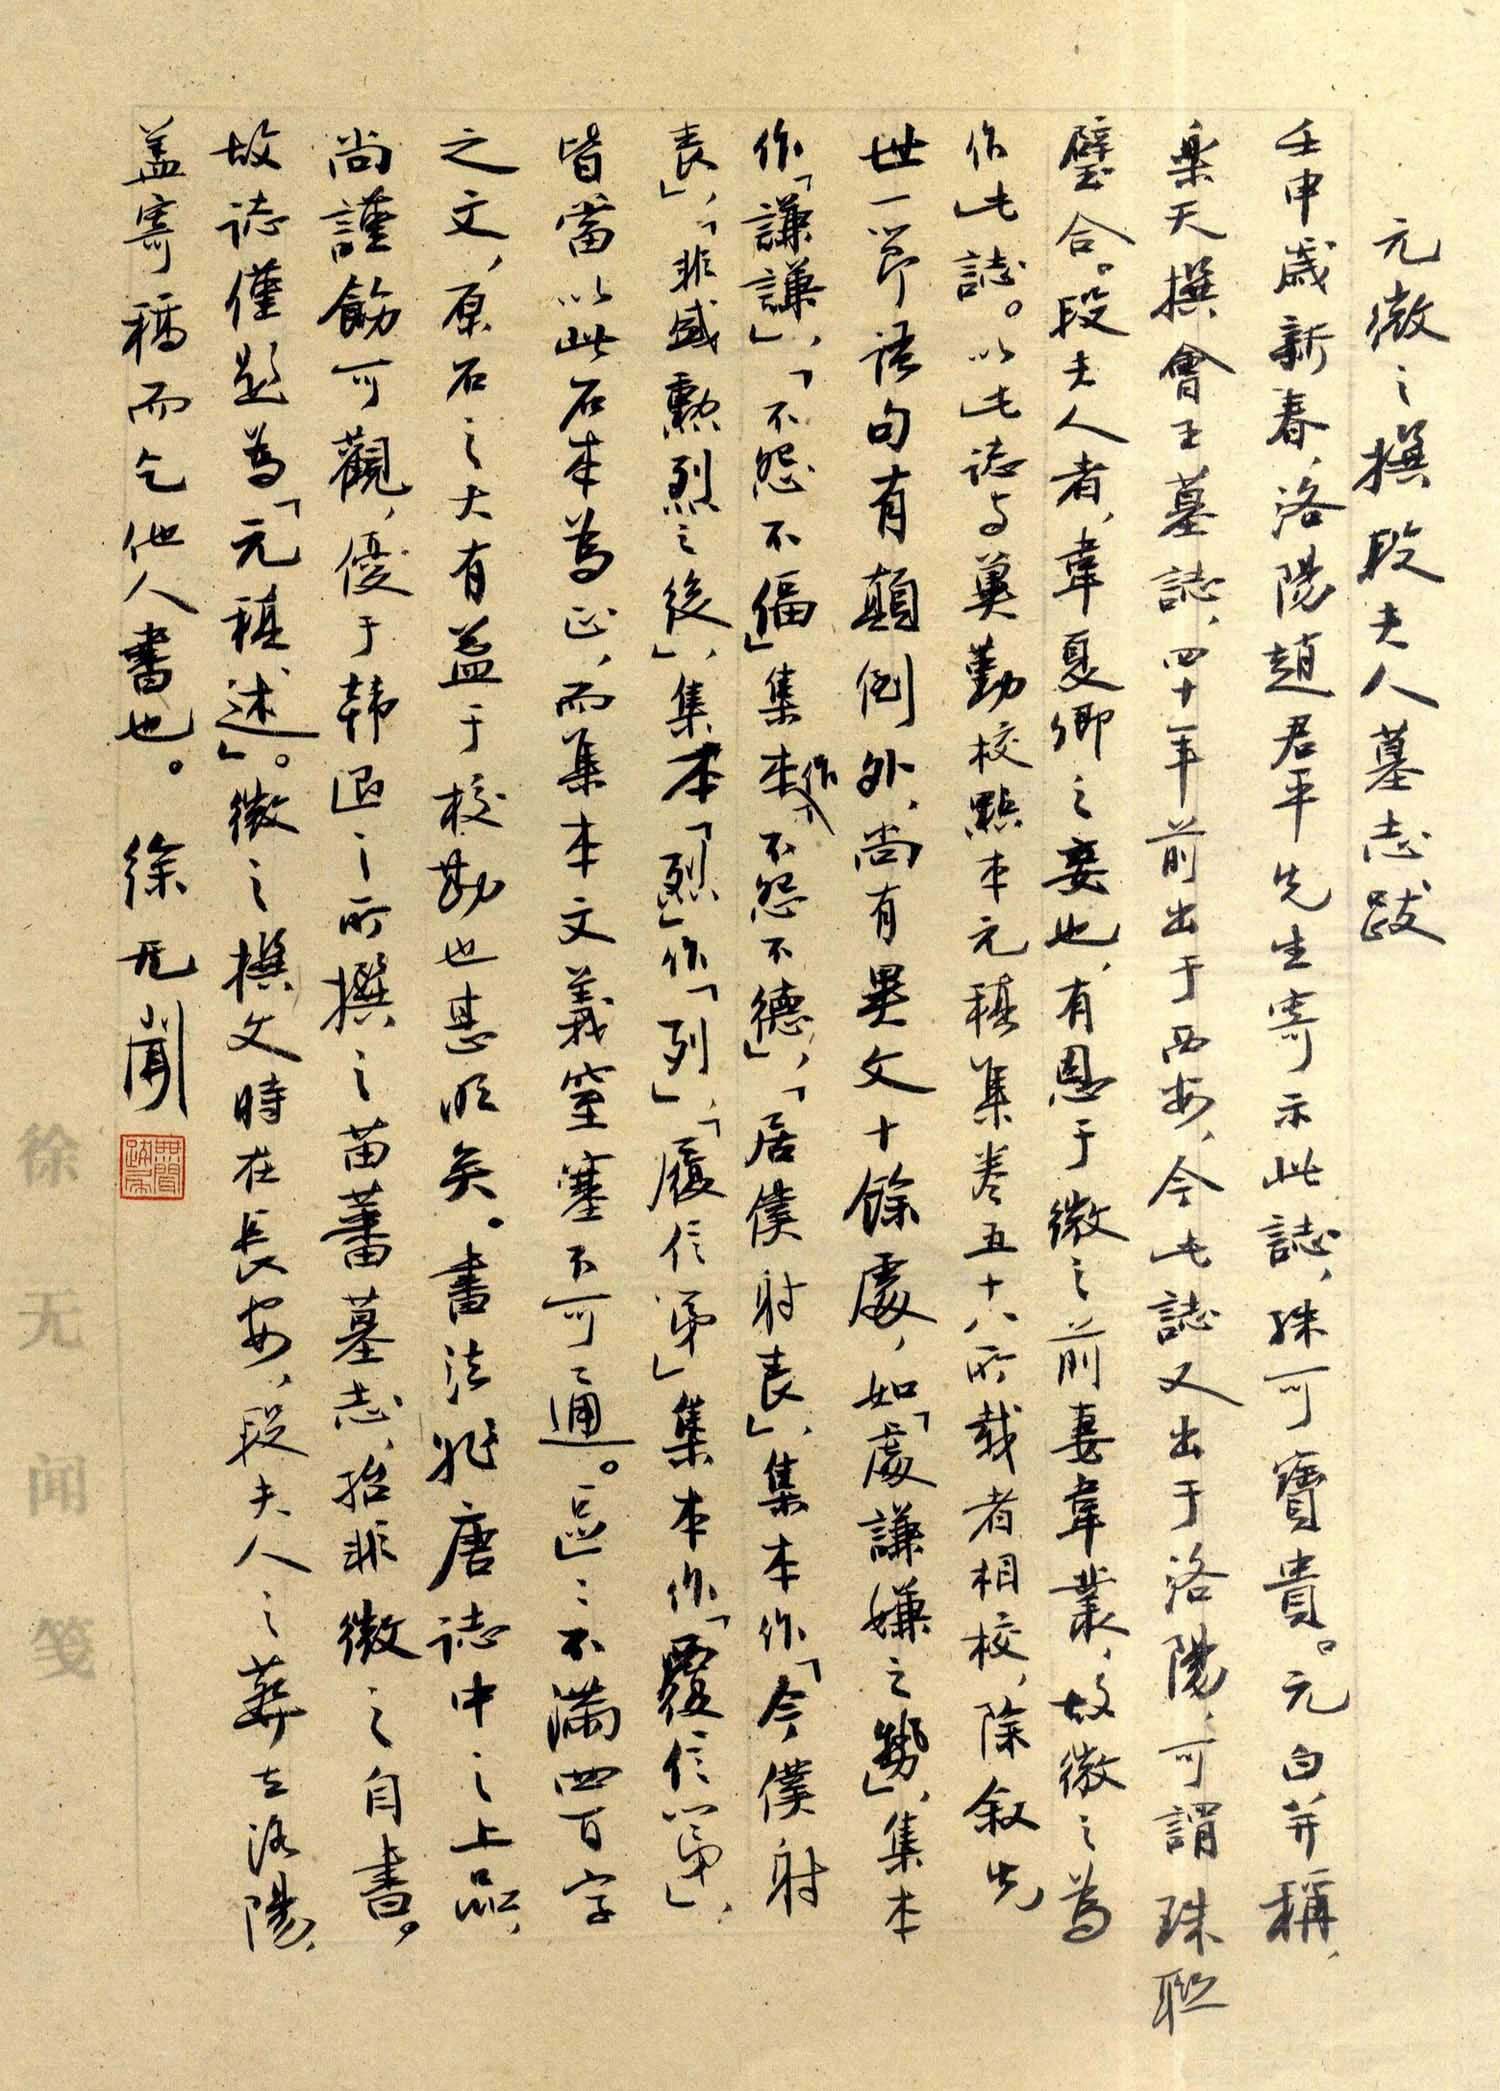 元微之撰段夫人墓志跋
壬申歲新春，洛陽趙君平先生寄示此誌，殊可寶貴。元白并稱，
樂天撰會王墓誌，四十年前出于西安，今此誌又出于洛陽，可謂珠联
璧合。段夫人者，韋夏卿之妾也，有恩于微之前妻韋叢，故微之為
作此誌。以此誌与冀勤校點本元稹集卷五十八所载者相校，除叙先
世一節语句有顛倒外，尚有異文十餘處，如「處謙嫌之勢」，集本
作「謙謙」，「不怨不偪」集本作「不怨不德」，「居僕射表」，集本作「今僕射
表」，「非盛勲烈之後」，集本「烈」作「列」，「履信第」集本作「覆信第」，
皆當以此石本為正，而集本文義窒塞不可通。區區不满四百字
之文，原石之大有益于校勘也甚明矣。書法非唐誌中之上品，
尚謹飭可觀，優于韩退之所撰之苗蕃墓志，殆非微之自書。
故誌僅題為「元稹述」。微之撰文時在長安，段夫人之葬在洛陽，
盖寄稿而乞他人書也。 徐无聞
無聞
徐无闻笺